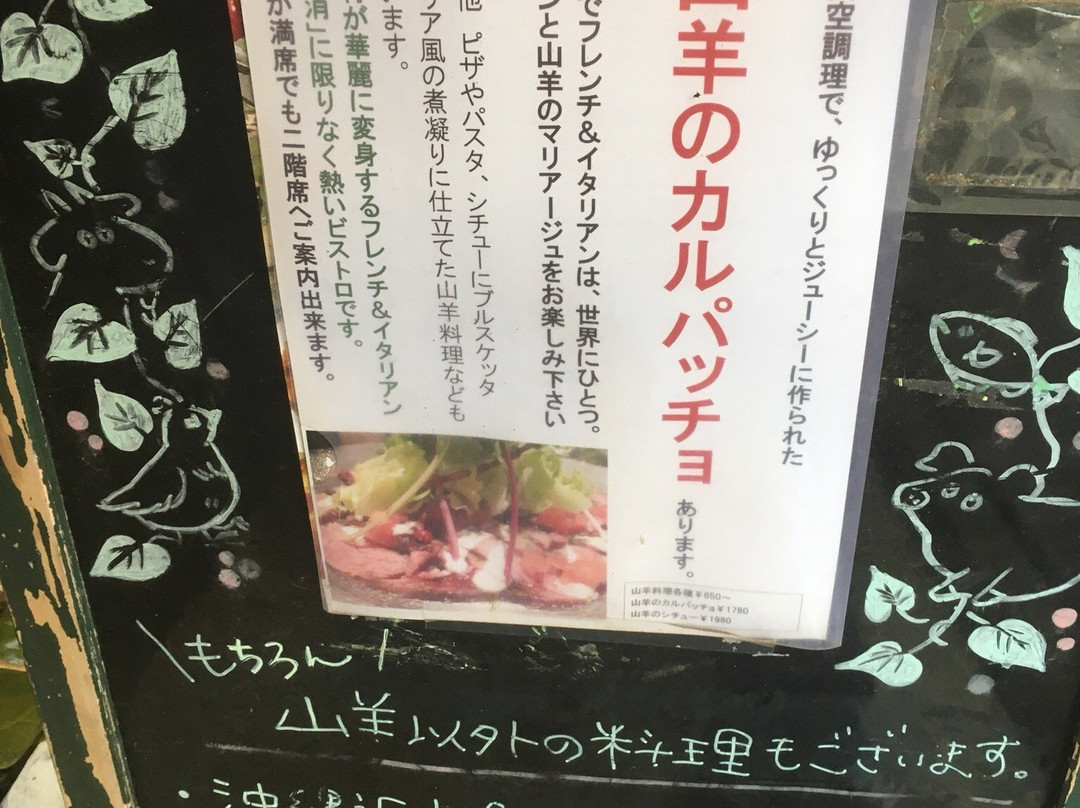 空調理で、ゆっくりとジューシーに作られた
山羊のカルパッチョ
あります。
でフレンチ＆イタリアンは、世界にひとつ。
ンと山羊のマリアージュをお楽しみ下さい
他 ピザやパスタ、シチューにブルスケッタ
リア風の煮凝りに仕立てた山羊料理なども
います。
が華麗に変身するフレンチ＆イタリアン
消」に限りなく熱いビストロです。
が満席でも二階席へご案内出来ます。
山羊料理各種￥650～
山羊のカルパッチョ￥1780
山羊のシチュー￥1980
\もちろん/
山羊以外の料理もございます。